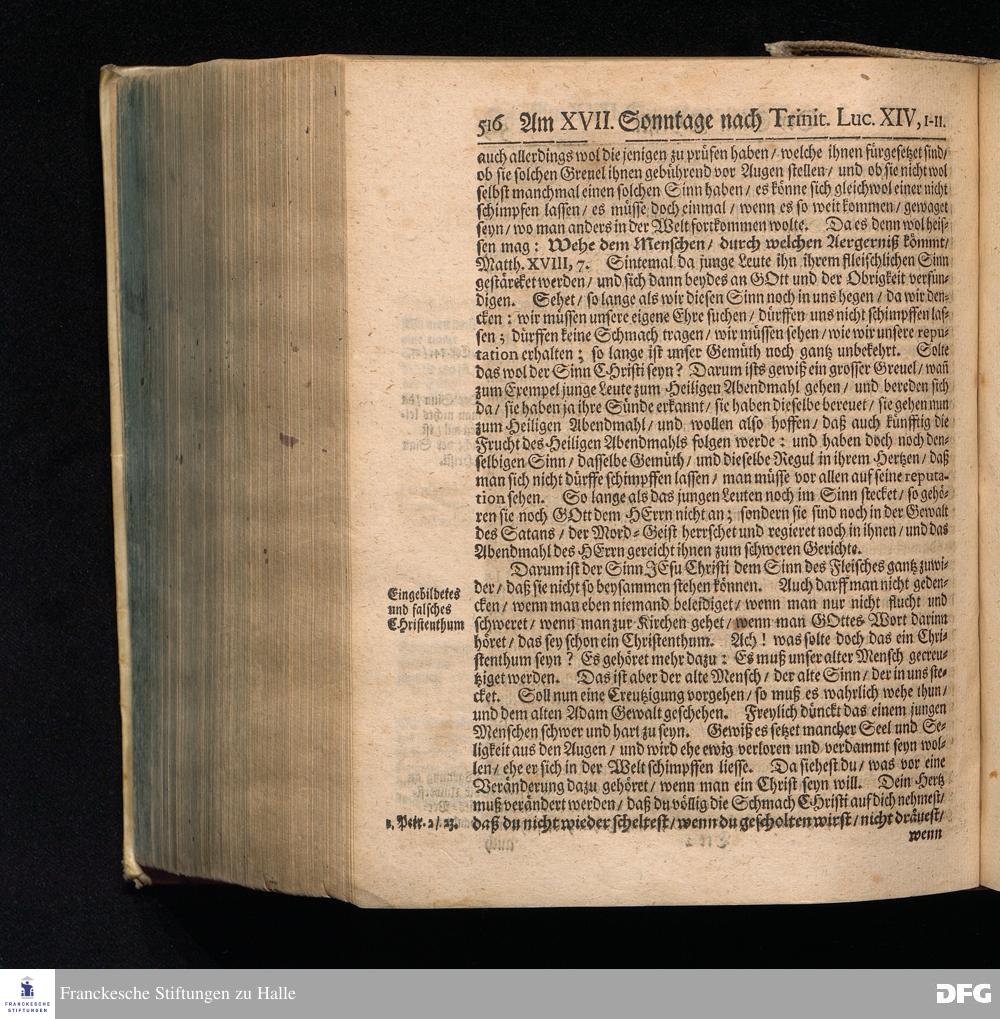 516 Am XVII. Sonntage nach Trinit. Luc. XIV, 1-11.
auch allerdings wol die jenigen zu prüfen haben / welche ihnen fürgesetzet sind/
ob sie solchen Greuel ihnen gebührend vor Augen stellen / und ob sie nicht wol
selbst manchmal einen solchen Sinn haben / es könne sich gleichwol einer nicht
schimpfen lassen / es müsse doch einmal / wenn es so weit kommen / gewaget
seyn / wo man anders in der Welt fortkommen wolte. Da es denn wol heis-
sen mag: Wehe dem Menschen / durch welchen Aergerniß kömmt/
Matth. XVIII, 7. Sintemal da junge Leute ihn ihrem fleischlichen Sinn
gestärcket werden / und sich dann beydes an GOtt und der Obrigkeit versün-
digen. Sehet / so lange als wir diesen Sinn noch in uns hegen / da wir den-
cken: wir müssen unsere eigene Ehre suchen / dürffen uns nicht schimpffen las-
sen; dürffen keine Schmach tragen / wir müssen sehen / wie wir unsere repu-
tation erhalten; so lange ist unser Gemüth noch gantz unbekehrt. Solte
das wol der Sinn CHristi seyn? Darum ists gewiß ein grosser Greuel / wañ
zum Exempel junge Leute zum Heiligen Abendmahl gehen / und bereden sich
da / sie haben ja ihre Sünde erkannt / sie haben dieselbe bereuet / sie gehen nun
zum Heiligen Abendmahl / und wollen also hoffen / daß auch künfftig die
Frucht des Heiligen Abendmahls folgen werde: und haben doch noch den-
selbigen Sinn / dasselbe Gemüth / und dieselbe Regul in ihrem Hertzen / daß
man sich nicht dürffe schimpffen lassen / man müsse vor allen auf seine reputa-
tion sehen. So lange als das jungen Leuten noch im Sinn stecket / so gehö-
ren sie noch GOtt dem HErrn nicht an; sondern sie sind noch in der Gewalt
des Satans / der Mord-Geist herrschet und regieret noch in ihnen / und das
Abendmahl des HErrn gereicht ihnen zum schweren Gerichte.
Darum ist der Sinn JEsu Christi dem Sinn des Fleisches gantz zuwi-
der / daß sie nicht so beysammen stehen können. Auch darff man nicht geden-
cken / wenn man eben niemand beleidiget / wenn man nur nicht flucht und
schweret / wenn man zur Kirchen gehet / wenn man GOttes Wort darinn
höret / das sey schon ein Christenthum. Ach! was solte doch das ein Chri-
stenthum seyn? Es gehöret mehr dazu: Es muß unser alter Mensch gecreu-
tziget werden. Das ist aber der alte Mensch / der alte Sinn / der in uns ste-
cket. Soll nun eine Creutzigung vorgehen / so muß es wahrlich wehe thun/
und dem alten Adam Gewalt geschehen. Freylich dünckt das einem jungen
Menschen schwer und hart zu seyn. Gewiß es setzet mancher Seel und Se-
ligkeit aus den Augen / und wird ehe ewig verloren und verdammt seyn wol-
len / ehe er sich in der Welt schimpffen liesse. Da siehest du / was vor eine
Veränderung dazu gehöret / wenn man ein Christ seyn will. Dein Hertz
muß verändert werden / daß du völlig die Schmach CHristi auf dich nehmest/
daß du nicht wieder scheltest / wenn du gescholten wirst / nicht dräuest/
wenn
Eingebildetes
und falsches
CHristenthum
1. Petr. 2/ 23.
Franckesche Stiftungen zu Halle
FRANCKESCHE
STIFTUNGEN
DFG